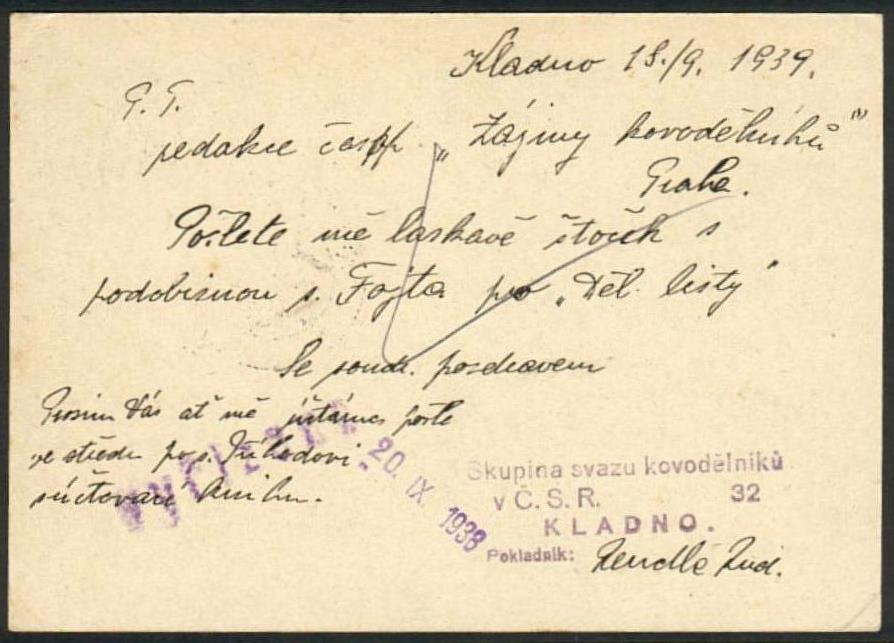 Kladno 18./9. 1939.
P. T.
redakce časp. „Zájmy kovodělníků"
Praha.
Pošlete mě laskavě štoček s
podobiznou s. Fojta pro „Děl. listy"
Se soudr. pozdravem
Prosím Vás ať mě pošle
ve středu po s. Příhodovi
súčtovací knihu.
20. IX. 1938
Skupina svazu kovodělníků
v Č. S. R. 32
KLADNO.
Pokladník: Rud.